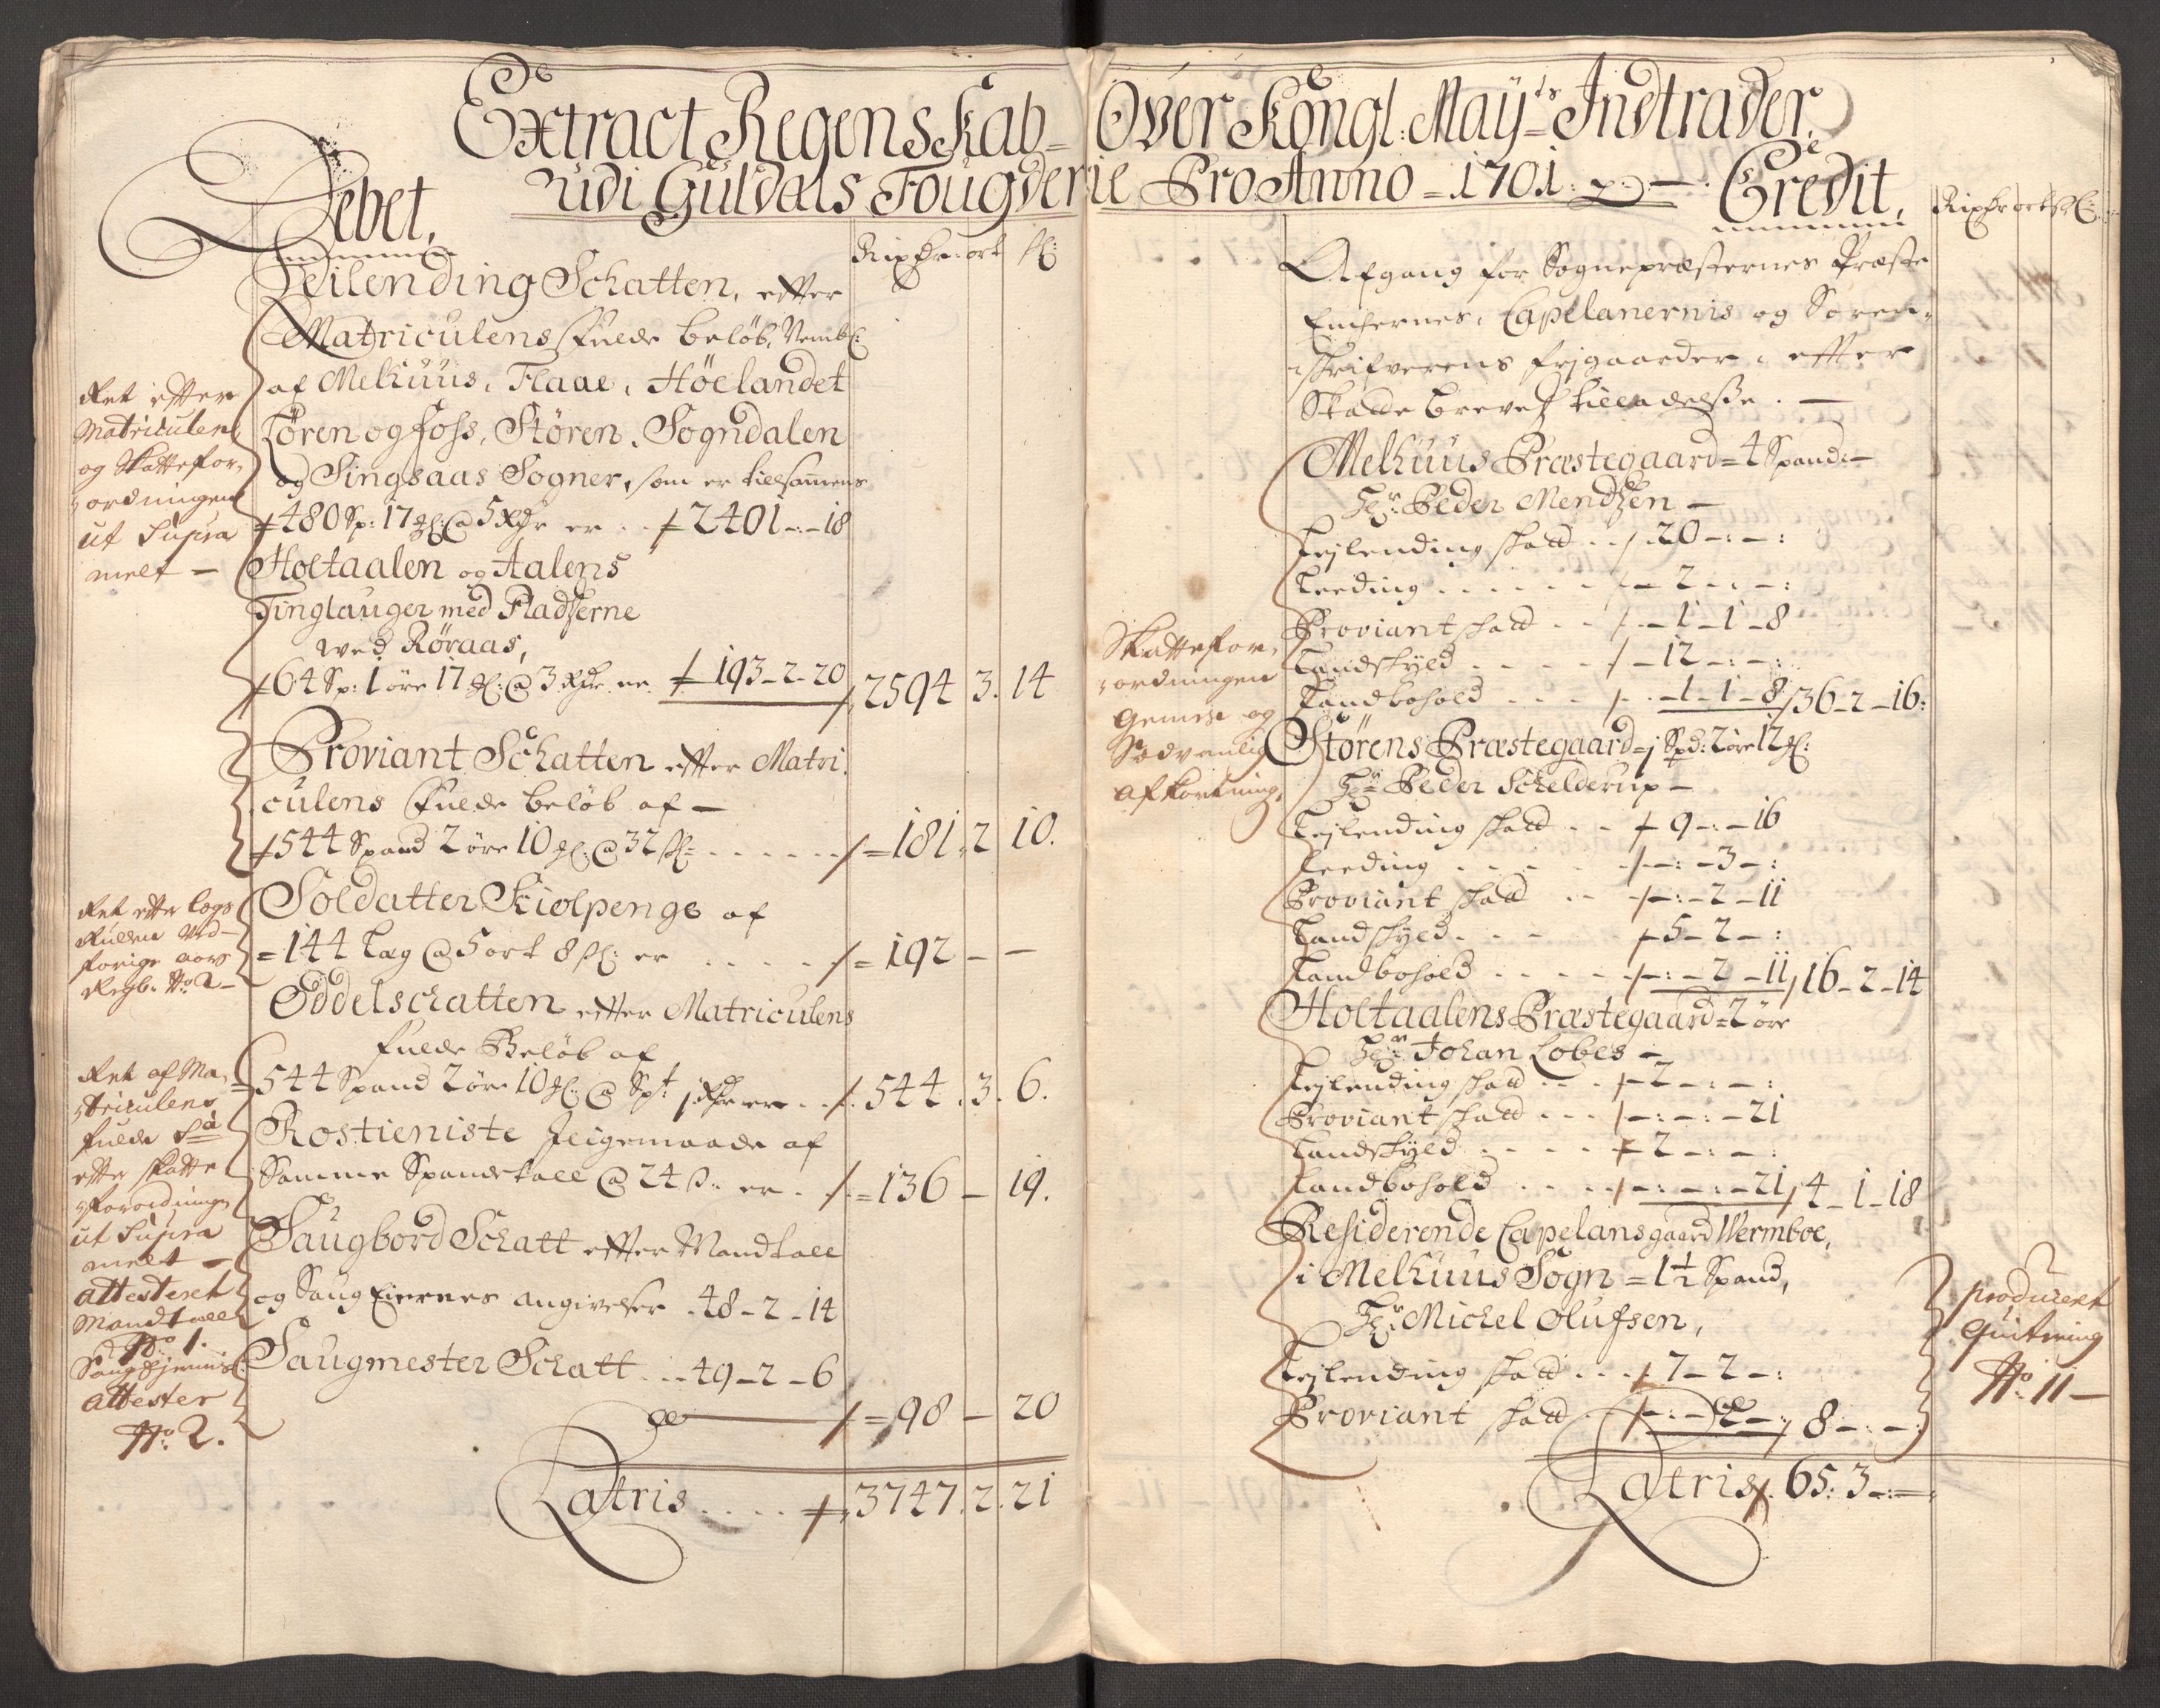 Extract Regenskab- Over Kongl: May:ts Indtrader,
udi Guldals Fougderie Pro Anno = 1701:
Debet,
Rixdr: ort ſſ:
Leilending Schatten, efter
Matriculens fulde beløb, Nembl:
af Melhuus, Flaae, Höelandet
Løren og foss, Støren, Sogndalen
og Singsaas Sogner, som er tilsamens
480 Sp: 17 ₰: @ 5 Rdr er .. 2401 -:- 18
Holtaalen og Aalens
Tinglauger med Pladzerne
wed Røraas,
64 Sp: 1 öre 17 ₰: @ 3 Rdr er. 193 - 2 - 20 2594 3. 14
Proviant Schatten efter Matri:
culens fulde beløb af -
544 Spand 2 öre 10 ₰: @ 32 ſſ: ...... = 181. 2 10.
Soldatter Kiolpenge af
= 144 Læg @ 5 ort 8 ſſ: er ..... = 192 - -
Oddelschatten efter Matriculens
fulde Beløb af
544 Spand 2 öre 10 ₰: @ Spt 1 Rdr er ... 544. 3. 6.
Rostieniste Jligemaade af
Samme Spandetall @ 24 ſſ: er . = 136 - 19.
Saugbord Schatt efter Mandtall
og Saug Eiernes angivelser . 48 - 2 - 14
Saugmester Schatt ... 49 - 2 - 6
= 98 - 20
Latris .... 3747. 2. 21
Ret efter
Matriculen
og Skattefor,
ordningen
ut Supra
melt -
Ret efter lægs
Rullen ved
forige aars
Regb: No 2 -
Ret af Ma,
triculens
fulde Sa
efter skatte
forordninge
ut Supra
melt -
attesteret
Mandtall
No 1.
attester
No. 2.
Credit,
Rixdr ort ſſ:
Afgang for Sognepræsternes Præste
Enchernes, Capellanernis og Soren,
skrifverens frjgaarder, efter
Skatte brevetz tilladelsse. -
Melhuus Præstegaard = 4 Spand: -
Hr: Peder Mendtzen -
Lejlending skatt ... 20 -:-:
Leeding ...... - 2 -:-:
Proviant skatt .. - 1 - 1 - 8
Landskyld .... - 12 -:-:
Landbohold ... - 1 - 1 - 8 36 - 2 - 16:
Störens Præstegaard = 1 Spd: 2 öre 12 ₰:
Hr: Peder Schelderup -
Lejlending skatt .. 9 -:- 16
Leeding ..... -:- 3 -:
Proviant skatt .. -:- 2 - 11
Landskyld .... 5 - 2 -:
Landbohold ..... -:- 2 - 11 16 - 2 - 14
Holtaalens Præstegaard = 2 öre
Hr: Johan Lobes -
Lejlending skatt ... 2 -:-:
Proviant skatt ... -:-:- 21
Landskyld .... 2 -:-:
Landbohold .... -:-:- 21 4 - 1 - 18
Residerende Capelans gaard Wermboe,
i Melhuus Sogn = 1½ Spand,
Hr: Michel Olufsen,
Lejlending skatt ... 7 - 2 -:
Proviant skatt . -:- 2 -: 8 -:-:
Latris 65: 3 -:-
Skattefor,
ordningen
Gemese og
Sædvanlig
afkortning.
producert
Quitering
No. 11 -